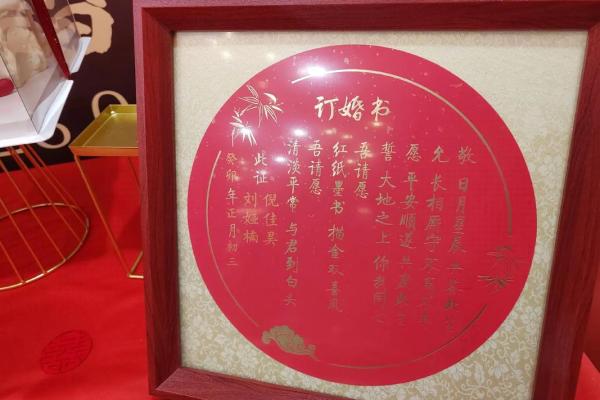 订婚书
敬 日月星辰
允 长相厮守
愿 平安顺遂
誓 大地之上 你我同心
吾请愿
红纸墨书 描金双喜
吾请愿
清淡平常 与君到白头
此证
倪佳昊
刘娅楠
癸卯年正月初三
囍